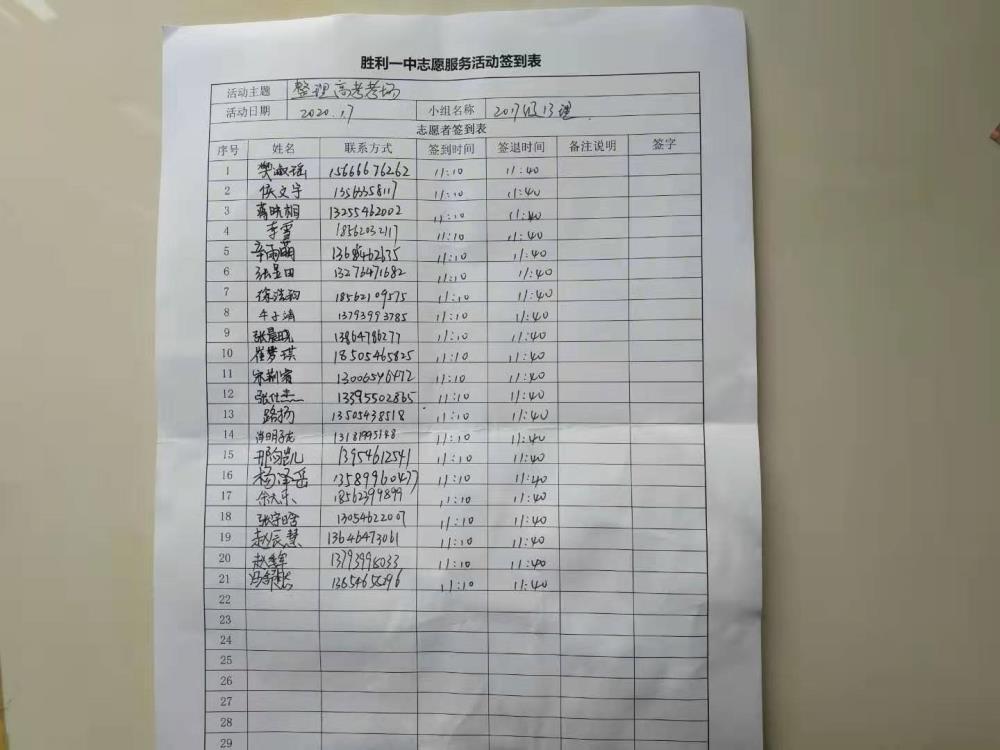 胜利一中志愿服务活动签到表
活动主题 整理高考考场
活动日期 2020.1.7 小组名称 2017级13理
志愿者签到表
序号 姓名 联系方式 签到时间 签退时间 备注说明 签字
1 樊淑瑶 15666676262 11:10 11:40
2 侯文宇 13563358117 11:10 11:40
3 蒋晓桐 13255462002 11:10 11:40
4 李雪 18562032117 11:10 11:40
5 辛雨萌 11:10 11:40
6 张昱田 13276471682 11:10 11:40
7 徐浩钧 18562109575 11:10 11:40
8 牛子清 13793993785 11:10 11:40
9 张晨晓 13864786277 11:10 11:40
10 崔梦琪 18505465825 11:10 11:40
11 13006546472 11:10 11:40
12 张仕杰 13395502865 11:10 11:40
13 路扬 13505438518 11:10 11:40
14 11:10 11:40
15 13954612541 11:10 11:40
16 杨泽岳 13589960477 11:10 11:40
17 徐天乐 18562399899 11:10 11:40
18 张宇晗 13054622007 11:10 11:40
19 赵辰慧 13646473061 11:10 11:40
20 11:10 11:40
21 13654656296 11:10 11:40
22
23
24
25
26
27
28
29